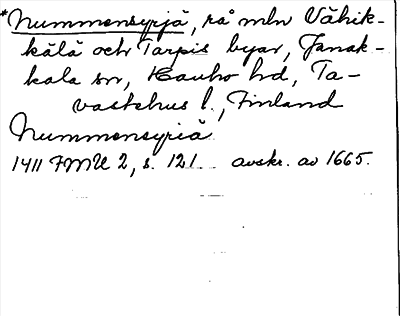 *Nummensyrjä, rå mln Vähik-
kälä och Tarpis byar, Janak-
kala sn, Hauho hd, Ta-
vastehus l., Finland
Nummensyriä
1411 FMU 2, s. 121 avskr. av 1665.